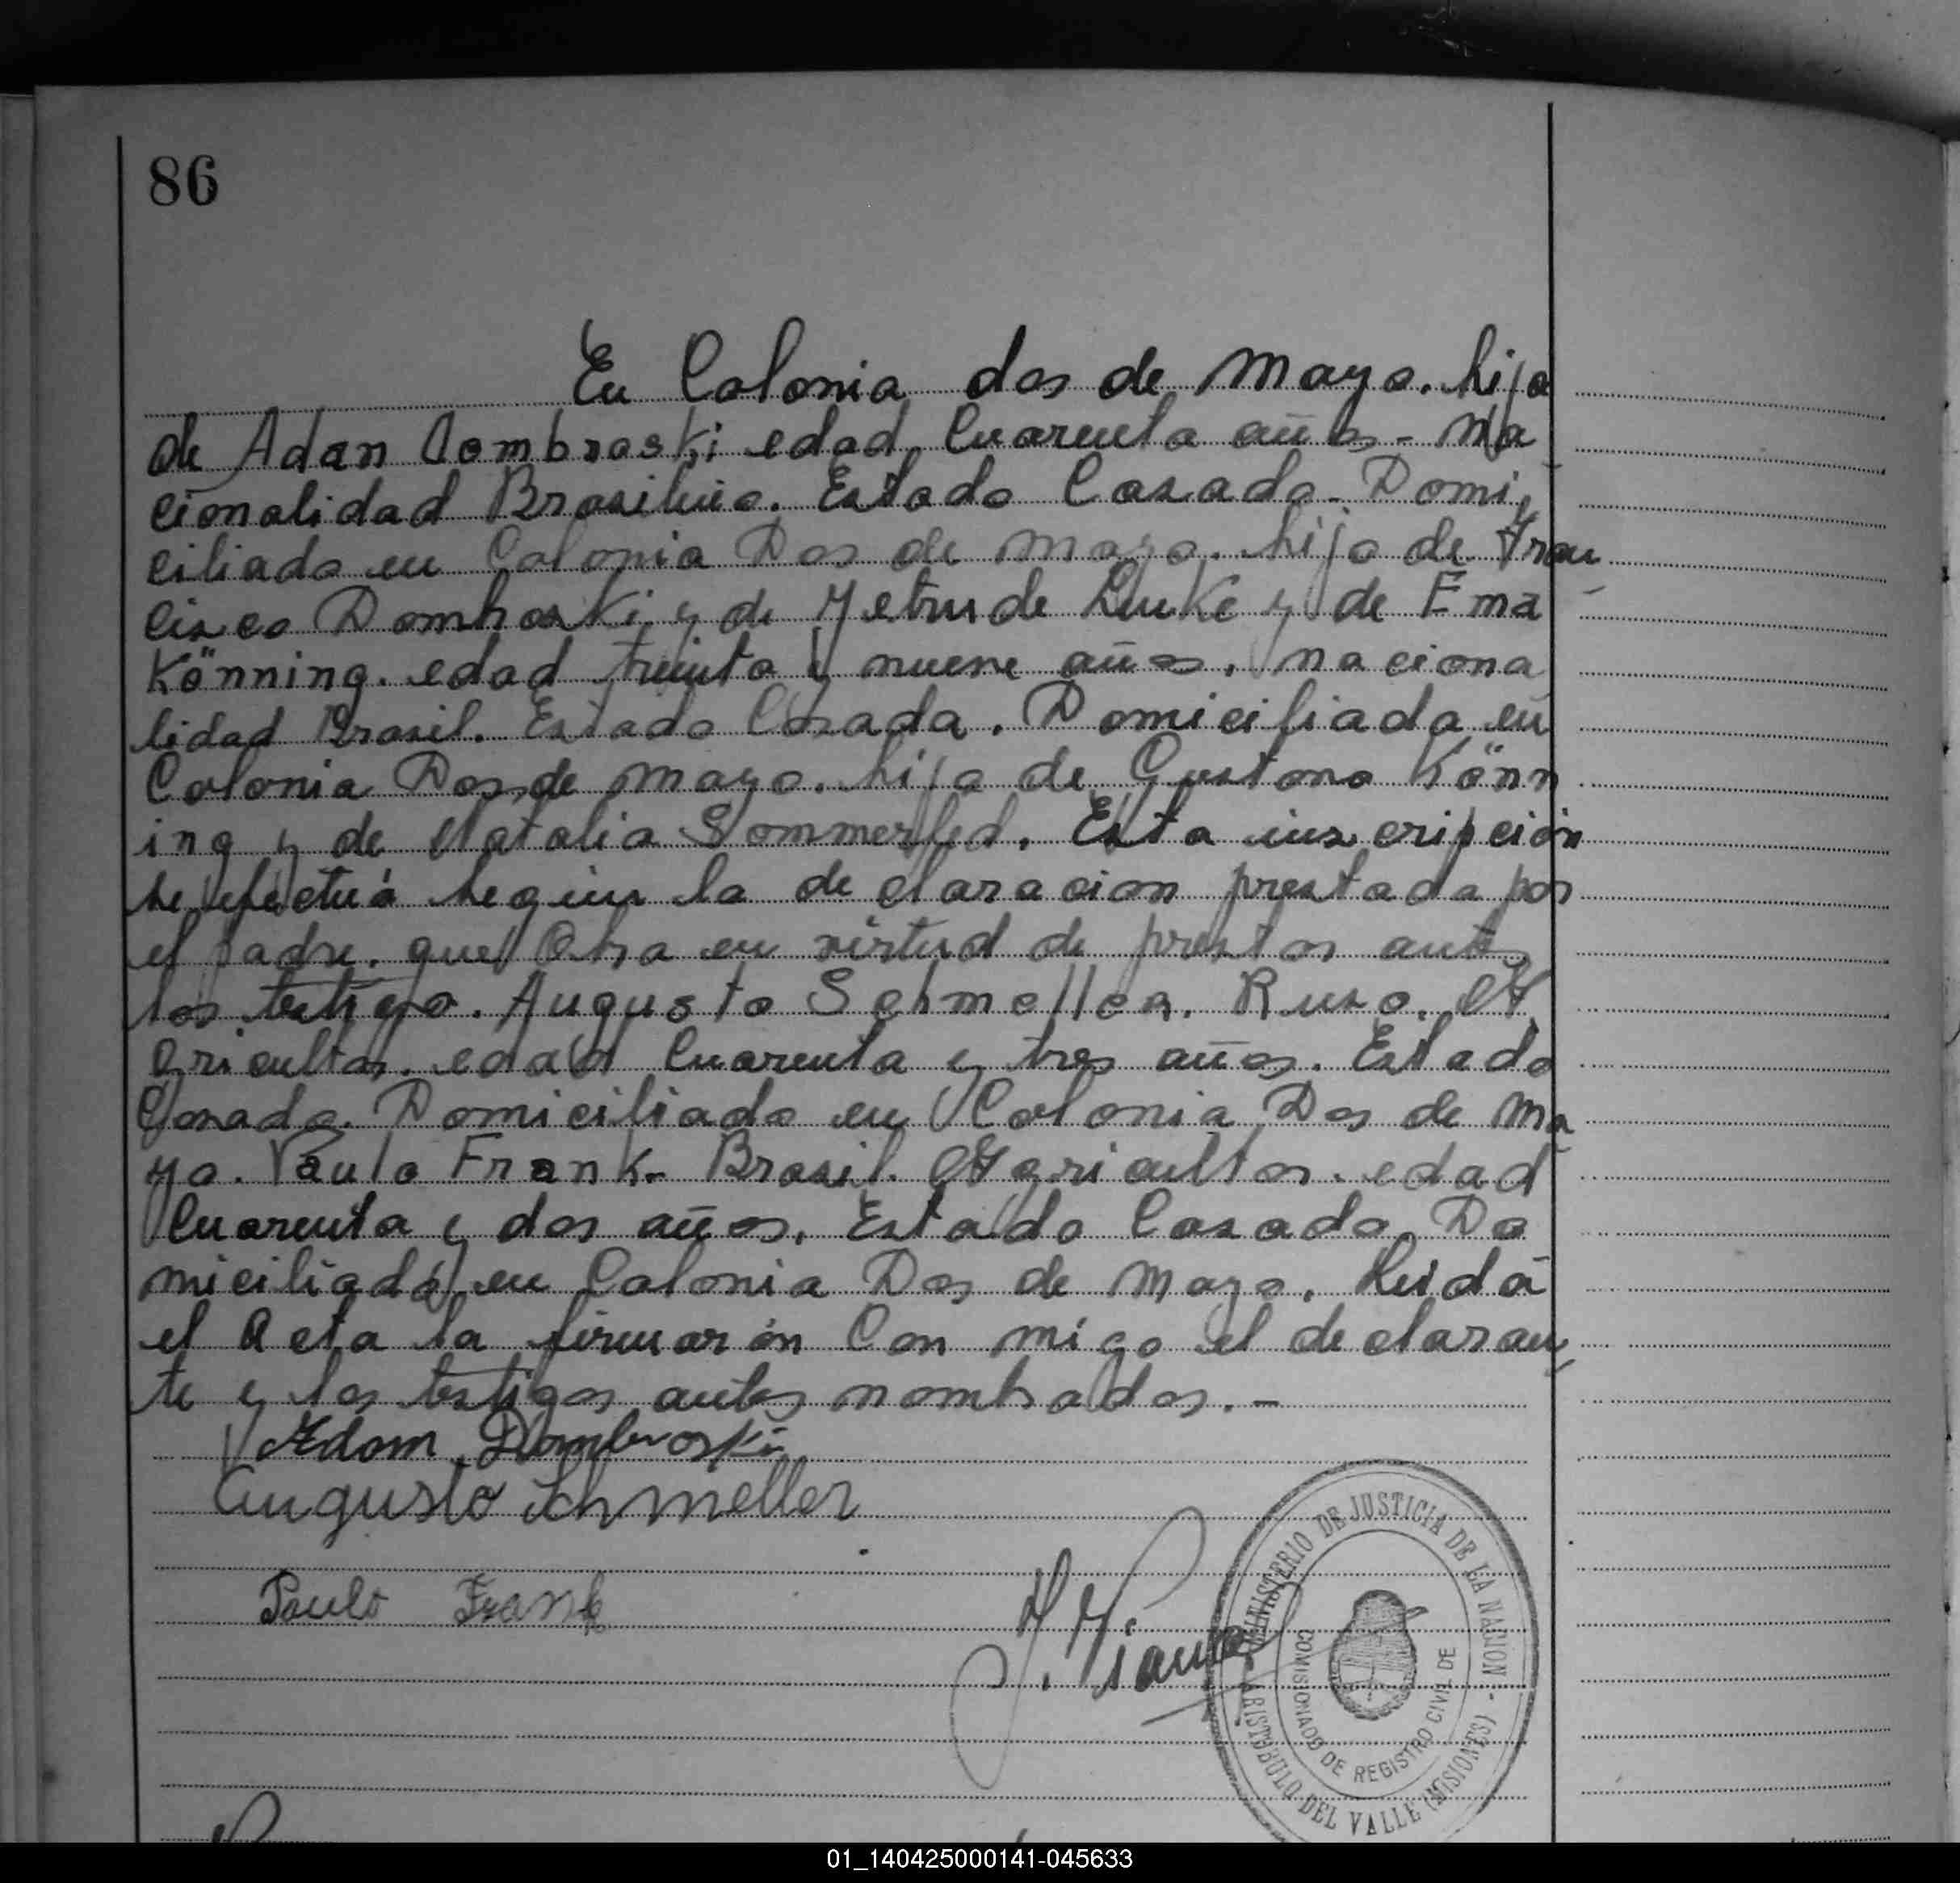 86
En Colonia dos de Mayo. hija
de Adan Dombroski edad, Cuarenta años - Na
cionalidad Brasileño. Estado Casado. Domi
ciliado en Colonia Dos de Mayo. hijo de Fran
cisco Dombroski y de Getrude Luke y de Ema
Könning. edad treinta y nueve años. naciona
lidad Brasil. Estado Casada. Domiciliada en
Colonia Dos de Mayo. hija de Gustavo Könn
ing y de Natalia Sommerfed. Esta inscripción
se efectuó según la declaracion prestada por
el padre. que Obra en virtud de ante
los testigo. Augusto Schmeller. Ruso. A
gricultor. edad Cuarenta y tres años. Estado
Casado. Domiciliado en Colonia Dos de Ma
yo. Paulo Frank. Brasil. Agricultor. edad
Cuarenta y dos años. Estado Casado. Do
miciliado en Colonia Dos de Mayo. Leida
el Acta la firmarón Con migo el declaran
te y los testigos antes nombrados. -
Adam Dombroski
Augusto Schmeller
Paulo Frank
MINISTERIO DE JUSTICIA DE LA NACION -
COMISIONADO DE REGISTRO CIVIL DE
ARISTOBULO DEL VALLE (MISIONES)
01_140425000141-045633